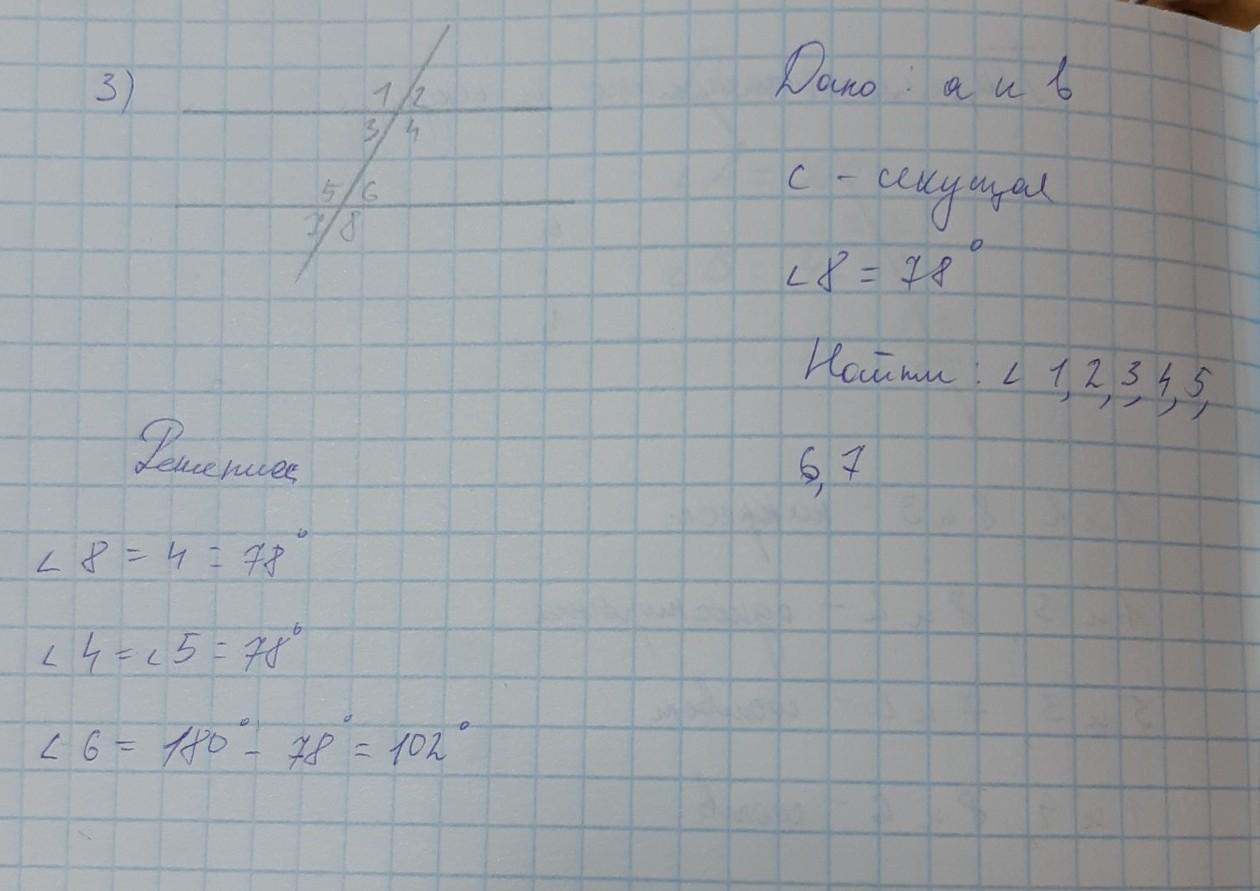 3)
1 2
3 4
5 6
7 8
Дано: а и b
с - секущая
∠8 = 78°
Найти: ∠ 1, 2, 3, 4, 5,
6, 7
Решение
∠ 8 = 4 = 78°
∠ 4 = ∠ 5 = 78°
∠ 6 = 180° - 78° = 102°